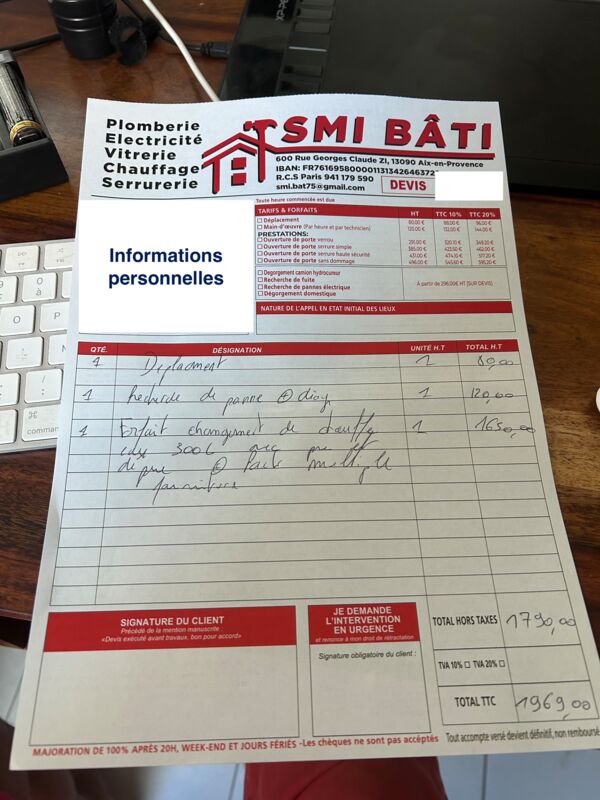 Plomberie
Electricité
Vitrerie
Chauffage
Serrurerie
SMI BÂTI
600 Rue Georges Claude ZI, 13090 Aix-en-Provence
IBAN: FR761695800001131342646372
R.C.S Paris 941 179 590
smi.bat75@gmail.com
DEVIS
Toute heure commencée est due
Informations
personnelles
TARIFS & FORFAITS HT TTC 10% TTC 20%
Déplacement 80.00 € 88.00 € 96.00 €
Main-d'œuvre (Par heure et par technicien) 120.00 € 132.00 € 144.00 €
PRESTATIONS:
Ouverture de porte verrou 291.00 € 320.10 € 349.20 €
Ouverture de porte serrure simple 385.00 € 423.50 € 462.00 €
Ouverture de porte serrure haute sécurité 431.00 € 474.10 € 517.20 €
Ouverture de porte sans dommage 496.00 € 545.60 € 595.20 €
Dégorgement camion hydrocureur
Recherche de fuite
Recherche de pannes électrique
Dégorgement domestique
À partir de 296,00€ HT (SUR DEVIS)
NATURE DE L'APPEL EN ETAT INITIAL DES LIEUX
QTÉ. DÉSIGNATION UNITÉ H.T TOTAL H.T
1 Deplacement 1 80,00
1 Recherche de panne @ diag 1 120,00
1 Forfait changement de chauffe 1 1650,00
eau 300L avec pose et
dépose @ Pack multiple
fourniture
SIGNATURE DU CLIENT
Précédé de la mention manuscrite :
«Devis exécuté avant travaux, bon pour accord»
JE DEMANDE
L'INTERVENTION
EN URGENCE
et renonce à mon droit de rétractation
Signature obligatoire du client :
TOTAL HORS TAXES 1790,00
TVA 10% TVA 20%
TOTAL TTC 1969,00
MAJORATION DE 100% APRÈS 20H, WEEK-END ET JOURS FÉRIÉS -Les chèques ne sont pas accéptés
Tout accompte versé devient définitif, non remboursé
command